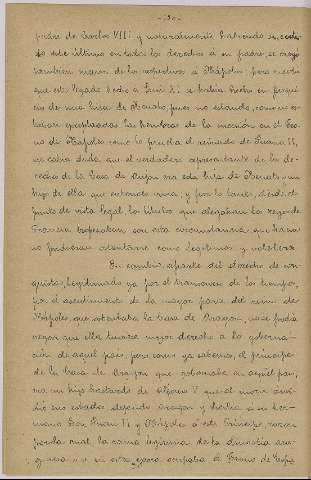 - 30 -
padre de Carlos VIII y naturalmente habiendo
este último en todos los derechos á su padre, se creyó
también mejor de los respectivos á Nápoles; pero resulta
que este legado hecho á Luis XI se había hecho en perjui-
cio de una hija de Renato, pues no estando, como no es-
taban excluidas las hembras de la sucesión en el Tro-
no de Nápoles como lo prueba el reinado de Juana II,
no cabía duda que el verdadero representante de los de-
rechos de la Casa de Anjou era esta hija de Renato ó un
hijo de ella que entonces vivía; y por lo tanto, desde el
punto de vista legal, los títulos que alegaban los reyes de
Francia tropezaban con esta circunstancia que hacía
no pudieran ostentarse como legítimos y
En cambio, aparte del derecho de con-
quista, legitimado ya por el transcurso de los tiempos,
por el asentimiento de la mayor parte del reino de
Nápoles, que ostentaba la casa de Aragón, no se podía
negar que ella tuviera mejor derecho á la goberna-
ción de aquel país; pero como ya sabemos, el príncipe
de la Casa de Aragón que reinaba en aquel país,
era un hijo bastardo de Alfonso V que al morir divi-
dió sus estados dejando Aragón y Sicilia á su her-
mano Don Juan II y Nápoles á este Príncipe, razón
por la cual la rama legítima de la dinastía ara-
gonesa que en esta época ocupaba el Trono de Espa-